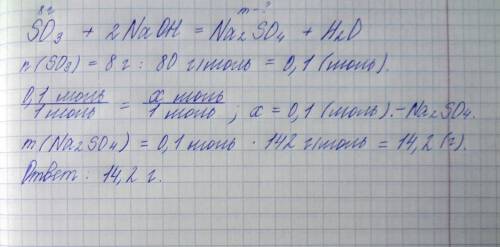 8 г m - ?
SO₃ + 2NaOH = Na₂SO₄ + H₂O
n(SO₃) = 8 г : 80 г/моль = 0,1 (моль).
0,1 моль / 1 моль = x моль / 1 моль ; x = 0,1 (моль). - Na₂SO₄.
m(Na₂SO₄) = 0,1 моль · 142 г/моль = 14,2 (г).
Ответ: 14,2 г.